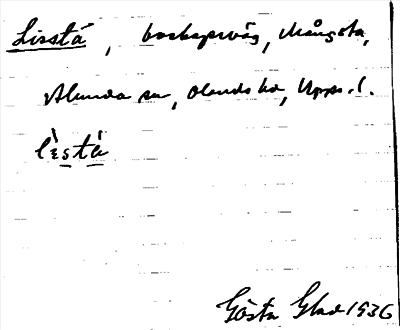 Lisstá, boskapsväg, Mångsta,
Alunda sn, Olands hd, Upps. l.
lìstá
Gösta Glad 1936